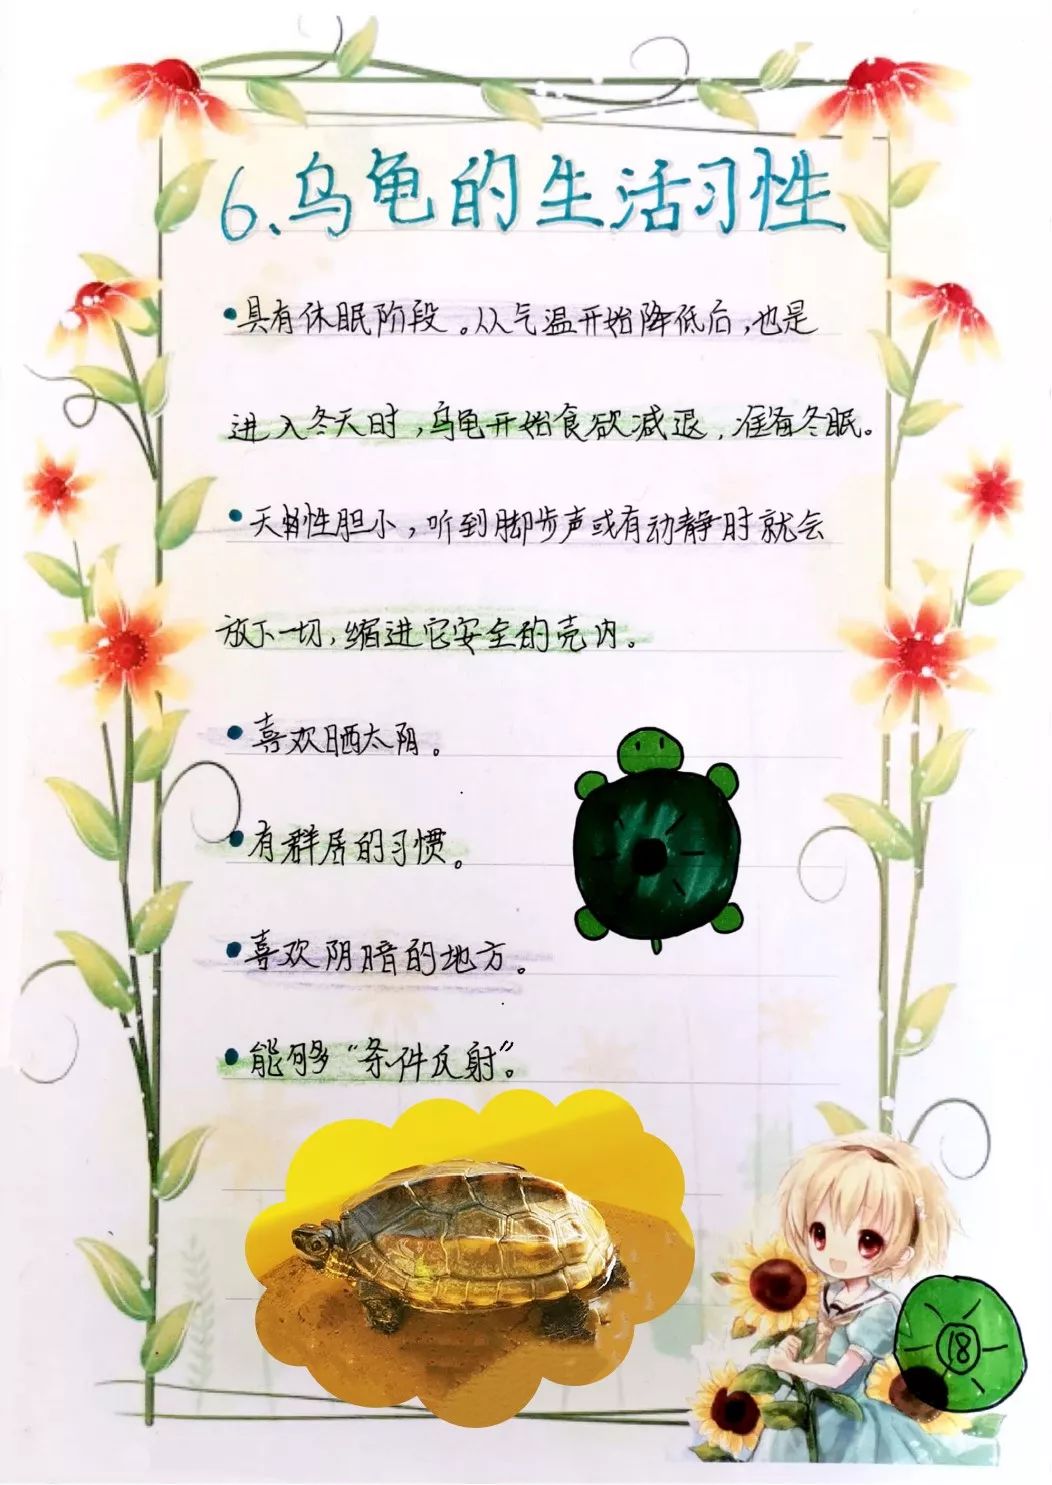 6、乌龟的生活习性
•具有休眠阶段。从气温开始降低后,也是
进入冬天时,乌龟开始食欲减退,准备冬眠。
•天性胆小,听到脚步声或有动静时就会
放下一切,缩进它安全的壳内。
•喜欢晒太阳。
•有群居的习惯。
•喜欢阴暗的地方。
•能够“条件反射”。
18